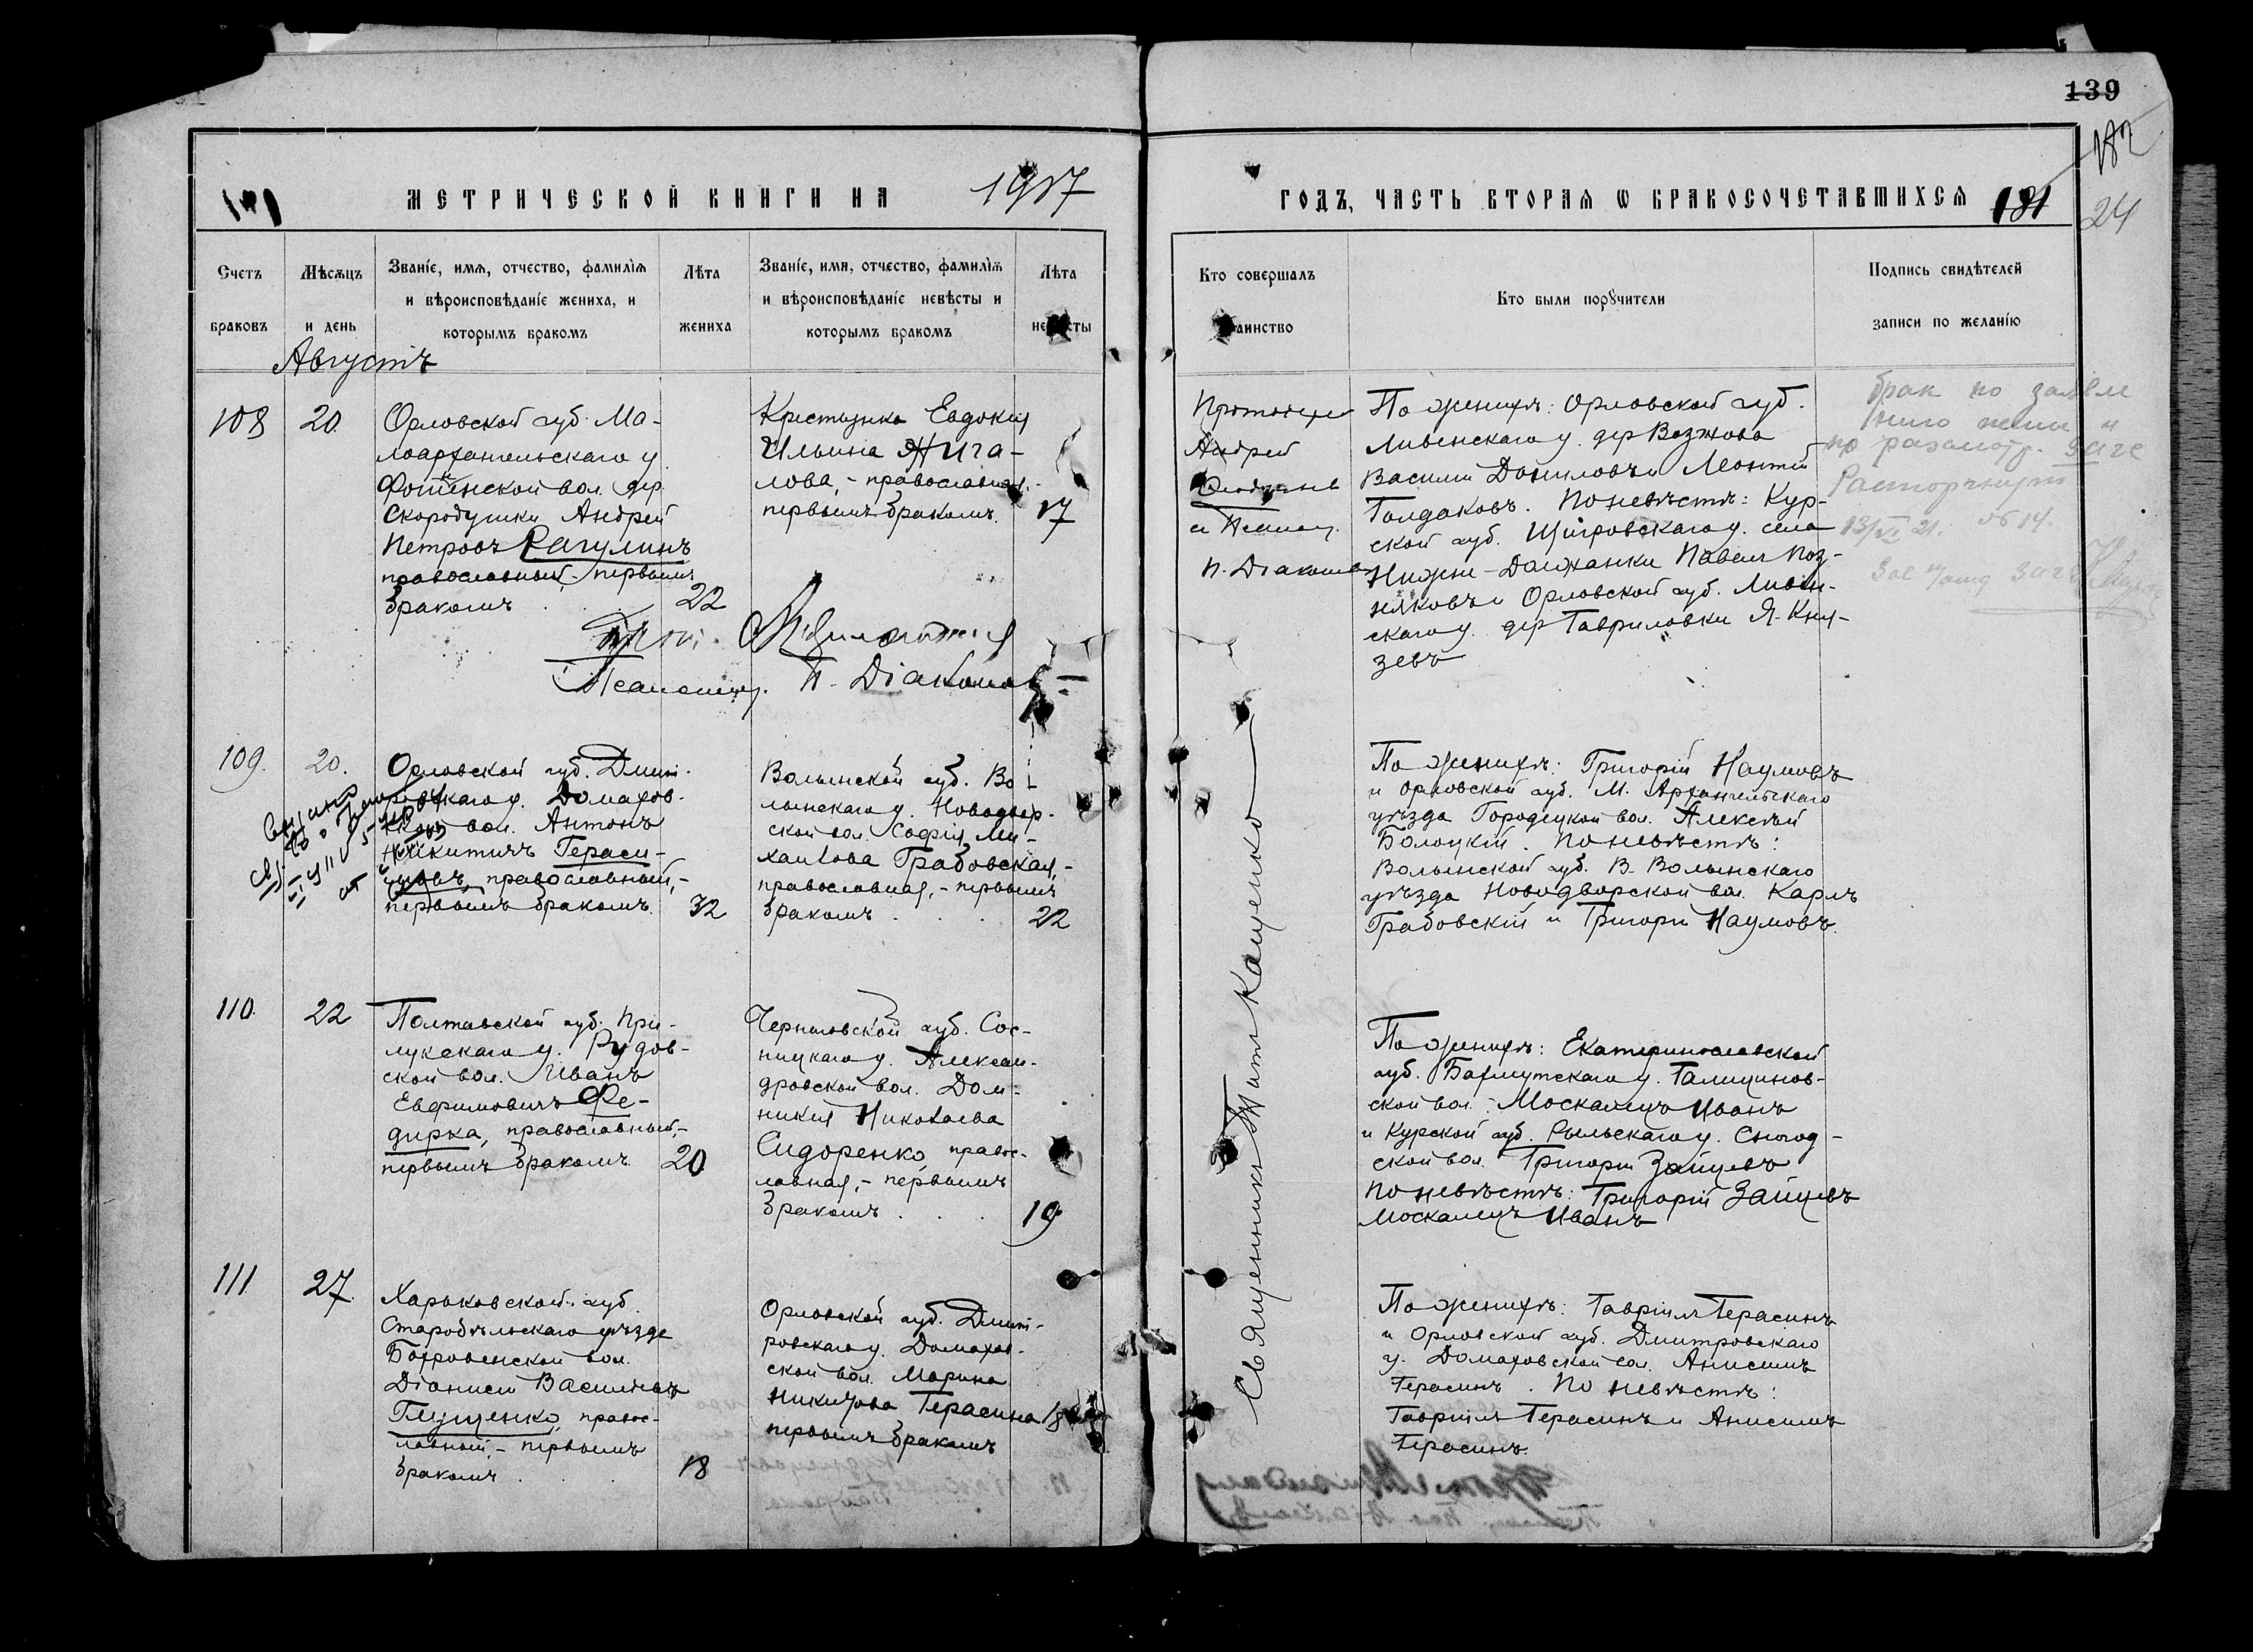 139
182
24
МЕТРИЧЕСКОЙ КНИГИ НА 1917
ГОДЪ, ЧАСТЬ ВТОРАЯ Ѡ БРАКОСОЧЕТАВШИХСЯ 181
Счетъ
браковъ
Мѣсяцъ
и день
Званіе, имя, отчество, фамилія
и вѣроисповѣданіе жениха, и
которымъ бракомъ
Лѣта
жениха
Званіе, имя, отчество, фамилія
и вѣроисповѣданіе невѣсты и
которымъ бракомъ
Лѣта
Кто совершалъ
Кто были порꙋчители
Подпись свидѣтелей
записи по желанію
Августъ
108
20.
Орловской губ. Ма-
лоархангельскаго у.
вол. дер.
Скородумки Андрей
Петровъ Рагулинъ
православный,- первымъ
бракомъ . . . 22
Крестьянка Евдокія
Ильина Жига-
лова,- православная,-
первымъ бракомъ. 17
Псаломщ. П. Діаконовъ
Протоіерей
Андрей
и Псалом.
П. Діаконовъ
По женихѣ: Орловской губ.
Ливенскаго у. дер.
Василій Даниловъ и
Толдаковъ. По невѣстѣ: Кур-
ской губ. Щигровскаго у. села
Нижне-Должанки Павелъ Поз-
няковъ и Орловской губ. Ливен-
скаго у. дер. Гавриловки Я. Кня-
зевъ
брак по заявле
нию жены и
по разсмотр. загс
Расторгнут
13/VI 21. № 14.
109.
20.
Орловской губ. Дмит-
ровскаго у. Домахов-
ской вол. Антонъ
Никитичъ Гераси-
православный,-
первымъ бракомъ. 32
Волынской губ. Во-
лынскаго у. Новодвор-
ской вол. Софія Ми-
хаилова Грабовская,-
православная,- первымъ
бракомъ . . . 22
По женихѣ: Григорій Наумовъ
и Орловской губ. М. Архангельскаго
уѣзда Городецкой вол. Алексѣй
Болоцкій. По невѣстѣ:
Волынской губ. В. Волынскаго
уѣзда Новодворской вол. Карлъ
Грабовскій и Григорій Наумовъ.
110.
22
Полтавской губ. При-
лукскаго у. Рудов-
ской вол. Иванъ
Евфимовичъ Фе-
дирка, православный,-
первымъ бракомъ 20
Черниговской губ. Сос-
ницкаго у. Алексан-
дровской вол. Дом-
никія Николаева
Сидоренко, правос-
лавная,- первымъ
бракомъ . . . 19
По женихѣ: Екатеринославской
губ. Бахмутскаго у. Галициновс-
ской вол. Москалецъ Иванъ
и Курской губ. Рыльскаго у. Снагод-
ской вол. Григорій Зайцевъ
По невѣстѣ: Григорій Зайцевъ
Москалецъ Иванъ
111
27.
Харьковской губ.
Старобѣльскаго уѣзда
Бахровенской вол.
Діонисій Васильевъ
Глущенко, правос-
лавный,- первымъ
бракомъ . . . 18
Орловской губ. Дмит-
ровскаго у. Домахов-
ской вол. Марина
Никитова Герасина 18
первымъ бракомъ
По женихѣ: Гавріилъ Герасинъ
и Орловской губ. Дмитровскаго
у. Домаховской вол. Анисимъ
Герасинъ. По невѣстѣ:
Гавріилъ Герасинъ и Анисимъ
Герасинъ.
Священникъ Кащенко